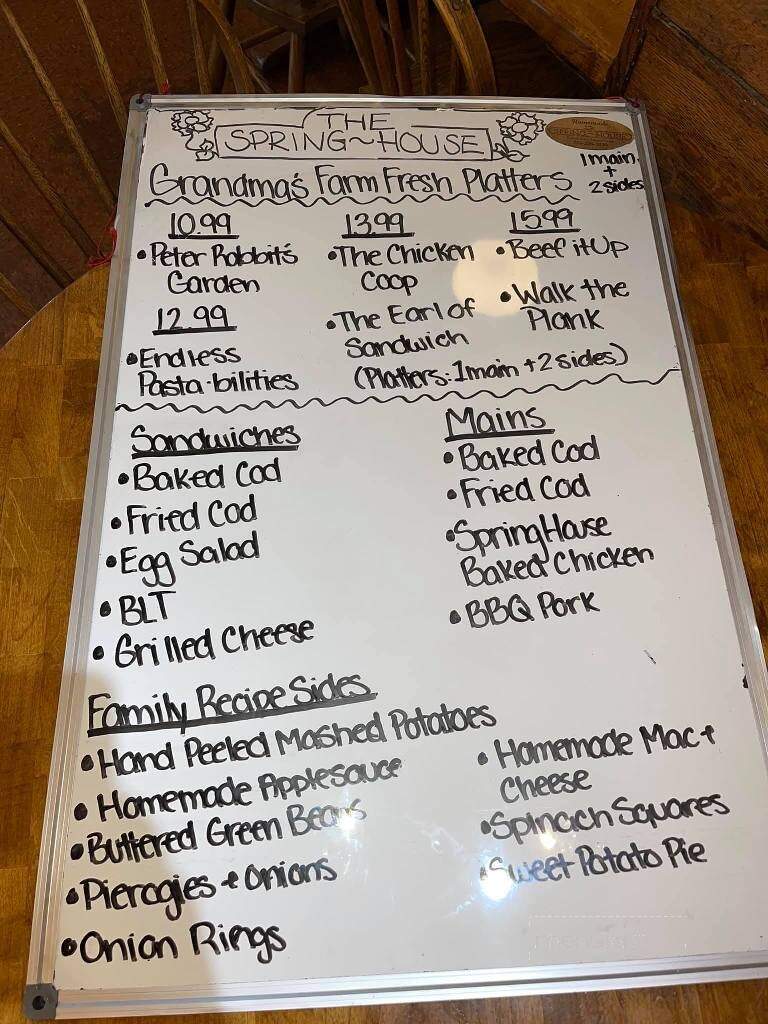 THE
SPRING~HOUSE
Homemade
SPRINGHOUSE
1 main
+
2 sides
Grandma's Farm Fresh Platters
10.99
• Peter Rabbit's
Garden
12.99
• Endless
Pasta-bilities
13.99
• The Chicken
Coop
• The Earl of
Sandwich
15.99
• Beef it Up
• Walk the
Plank
(Platters: 1 main + 2 sides)
Sandwiches
• Baked Cod
• Fried Cod
• Egg Salad
• BLT
• Grilled Cheese
Mains
• Baked Cod
• Fried Cod
• SpringHouse
Baked Chicken
• BBQ Pork
Family Recipe Sides
• Hand Peeled Mashed Potatoes
• Homemade Applesauce
• Buttered Green Beans
• Pierogies + Onions
• Onion Rings
• Homemade Mac +
Cheese
• Spinach Squares
• Sweet Potato Pie